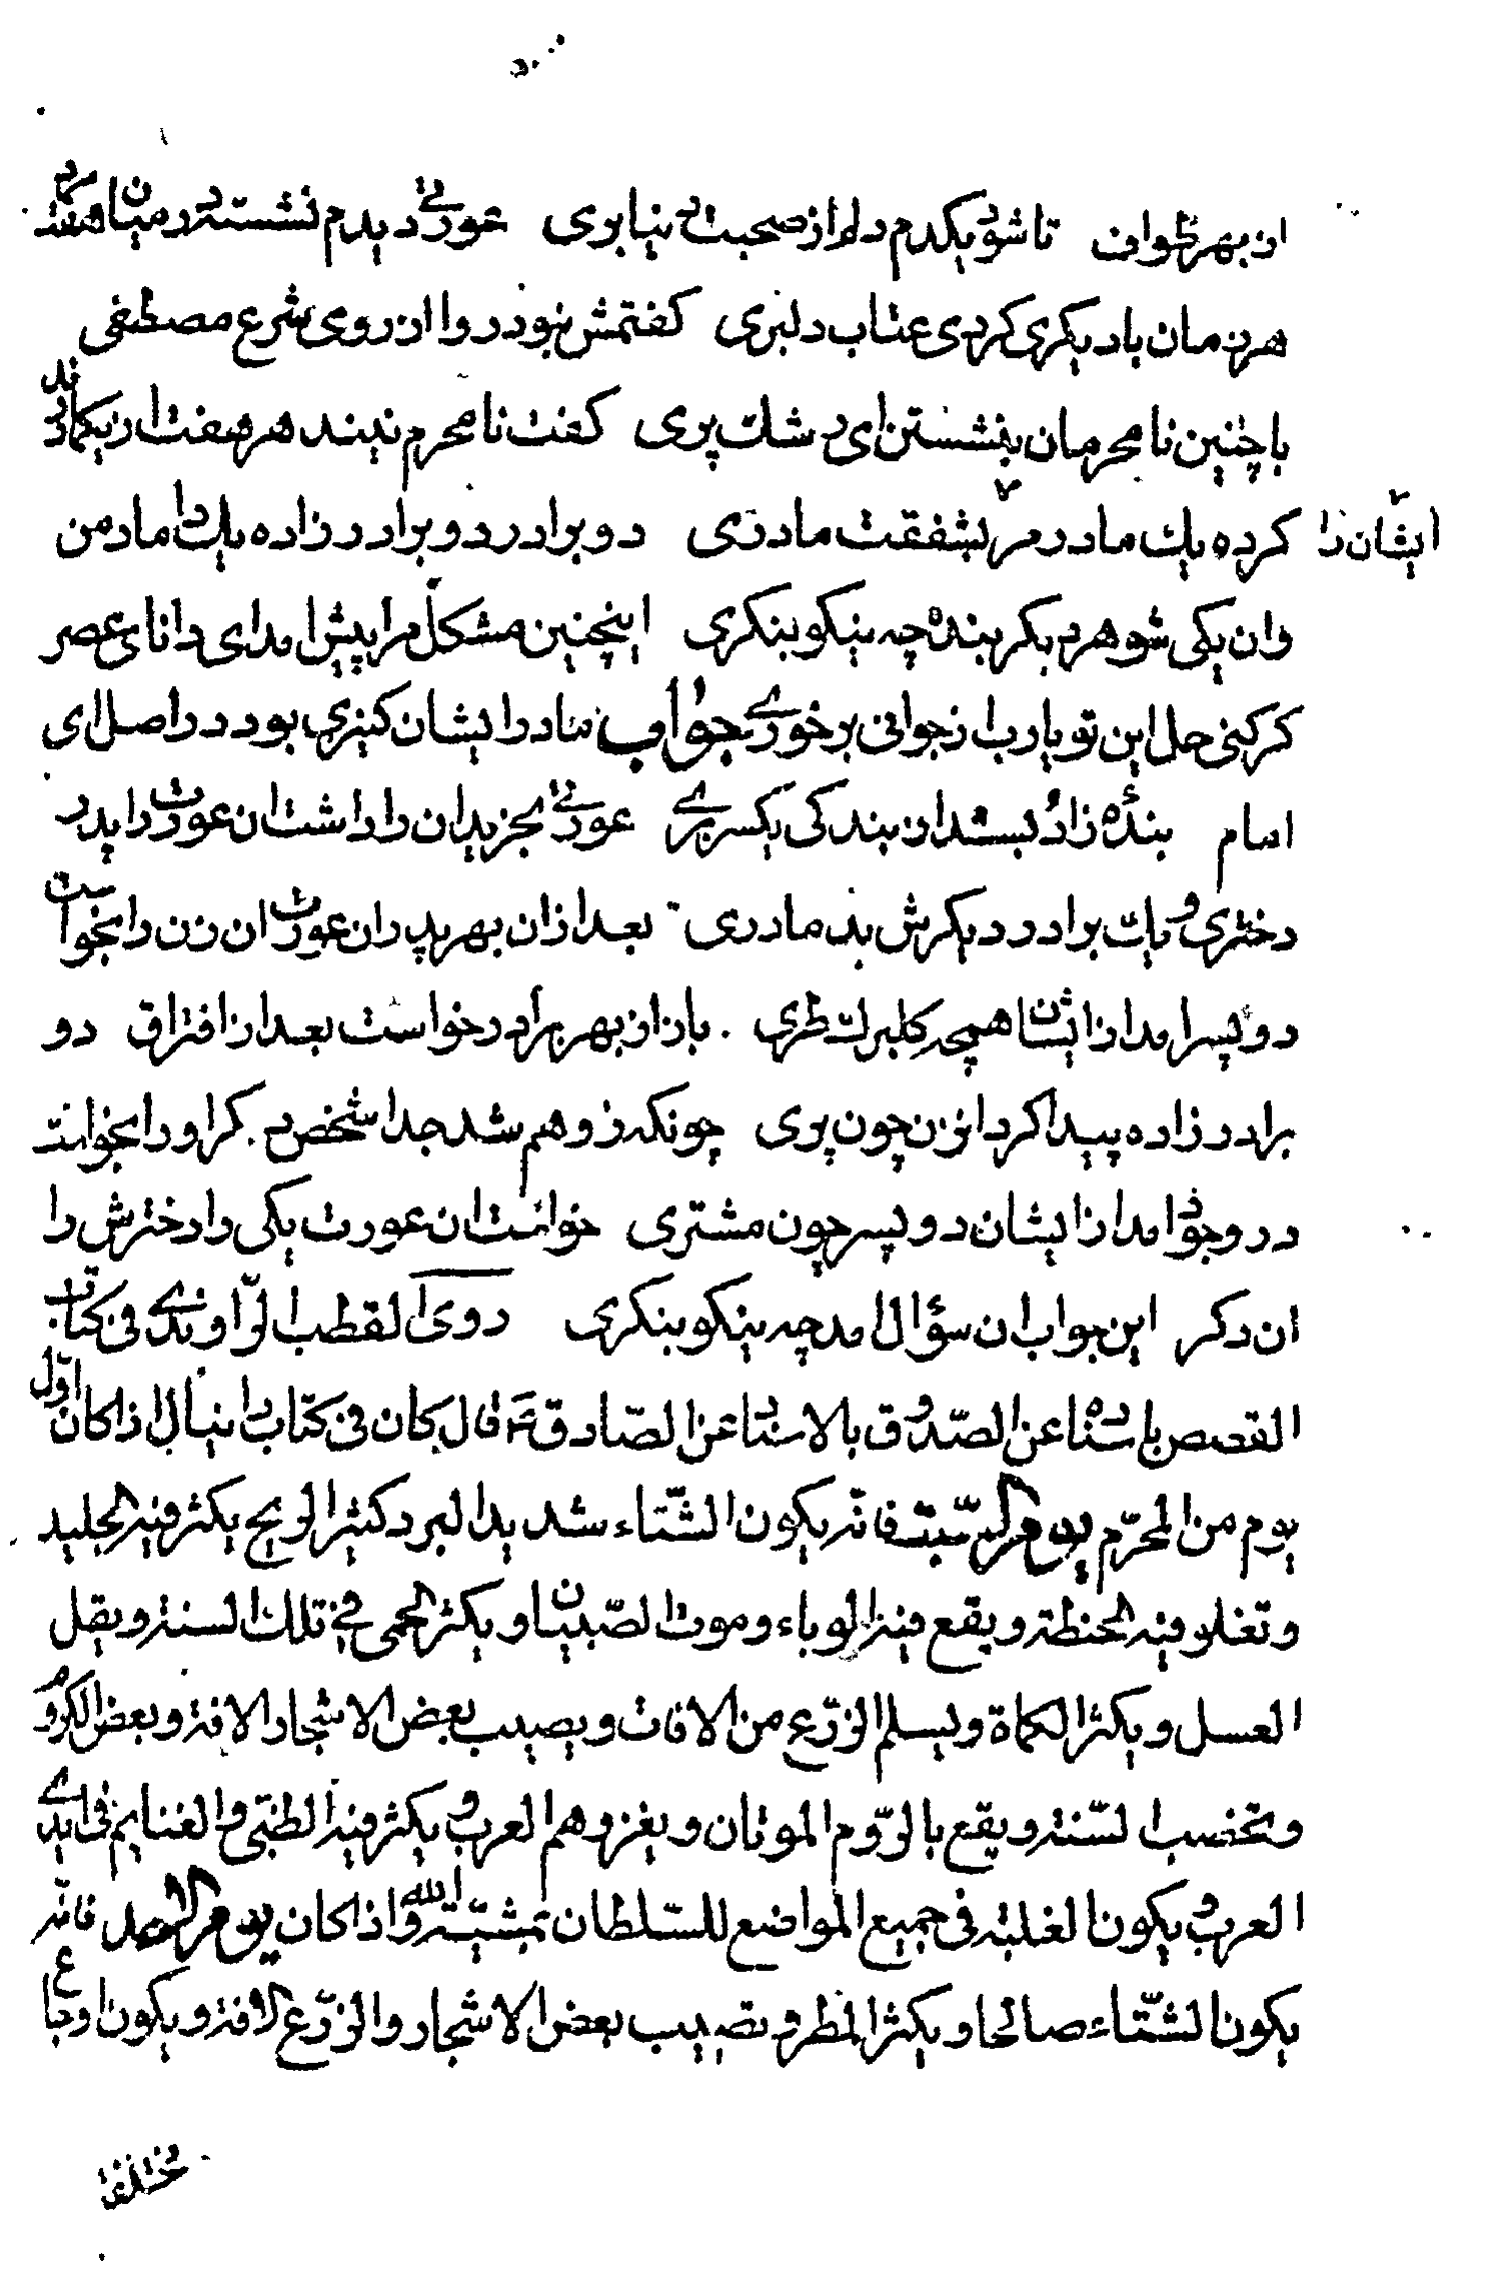 از بهر طوان تا شود یکدم دلم از صحبت دنیا بری عورتی دیدم نشسته در میان هفت مرد
هر زمان با دیگری کردی عتاب دلبری گفتمش نبود روا از روی شرع مصطفی
با چنین نامحرمان بنشستن ای در شک پری گفت نامحرم نیند هر هفت از یکمادرند
ایشان را کرده یک مادر مر بشفقت مادری دو برادر دو برادر زاده یک داماد من
وان یکی شوهر دیگر بنده چه نیکو بنگری اینچنین مشکل مرا پیش امد ای دانای عصر
گر کنی حل این تو یارب از جوانی برخوری جواب مادر ایشان کنیزی بود در اصل ای
امام بنده زاد بستد از بندگی یکسر بری عورتی بخرید ان را داشت ان عورت را پدر
دختری و یک برادر دیگرش بد مادری بعد ازان بهر پدر ان عورت ان زن را بخواست
دو پسر امد از ایشان همچه گلبرک طری باز از بهر برادر خواست بعد از افتراق دو
برادر زاده پیدا کرد ازن چون پری چونکه زو هم شد جدا شخص دگر او را بخواست
در وجود امد از ایشان دو پسر چون مشتری خواست ان عورت یکی را دخترش را
ان دگر این جواب ان سؤال امد چه نیکو بنگری روی القطب الرّاوندی فی کتاب
القصص باسناده عن الصّدوق بالاسناد عن الصّادق ع قال کان فی کتاب دانیال اذا کان اوّل
یوم من المحرّم یوم السّبت فانّه یکون الشّتاء شدید البرد کثیر الریح یکثر فیه الجلید
و تغلو فیه الحنطة و یقع فیه الوباء و موت الصّبیان و یکثر الحمی فی تلک السنة و یقل
العسل و یکثر الکماة و یسلم الزّرع من الافات و یصیب بعض الاشجار الافة و بعض الکروم
و تخصب السّنة و یقع بالرّوم الموتان و یغزوهم العرب و یکثر فیه السّبی و الغنایم فی ایدی
العرب و یکون الغلبة فی جمیع المواضع للسّلطان بمشیّة الله و اذا کان یوم الاحد فانّه
یکون الشّتاء صالحا و یکثر المطر و تصیب بعض الاشجار و الزّرع الافة و یکون اوجاع
مختلفة